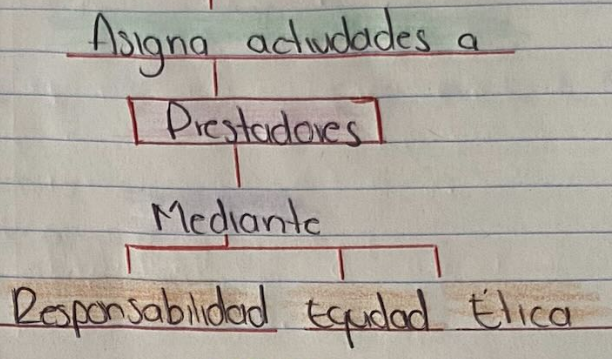 Asigna actividades a
Prestadores
Mediante
Responsabilidad Equidad Ética